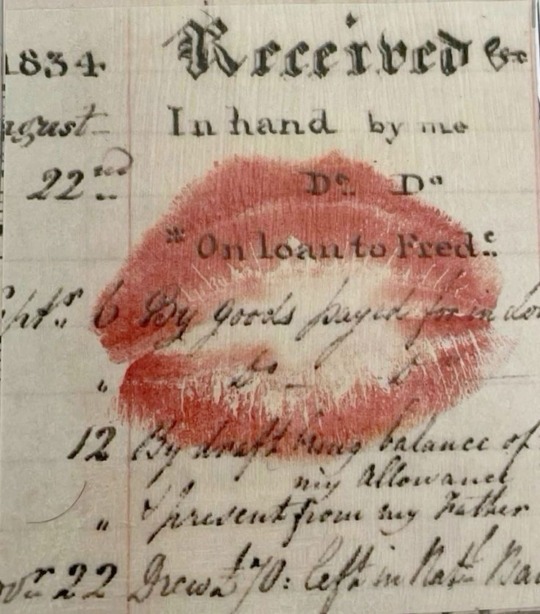 1834 Received &c
August In hand by me
22nd Do Do
"On loan to Fredc
Septr 6 By goods payed for in Lo
" Do - Do
12 By draft being balance of
my Allowance
" & present from my Father
Novr 22 Drew £70: left in Natl Ba